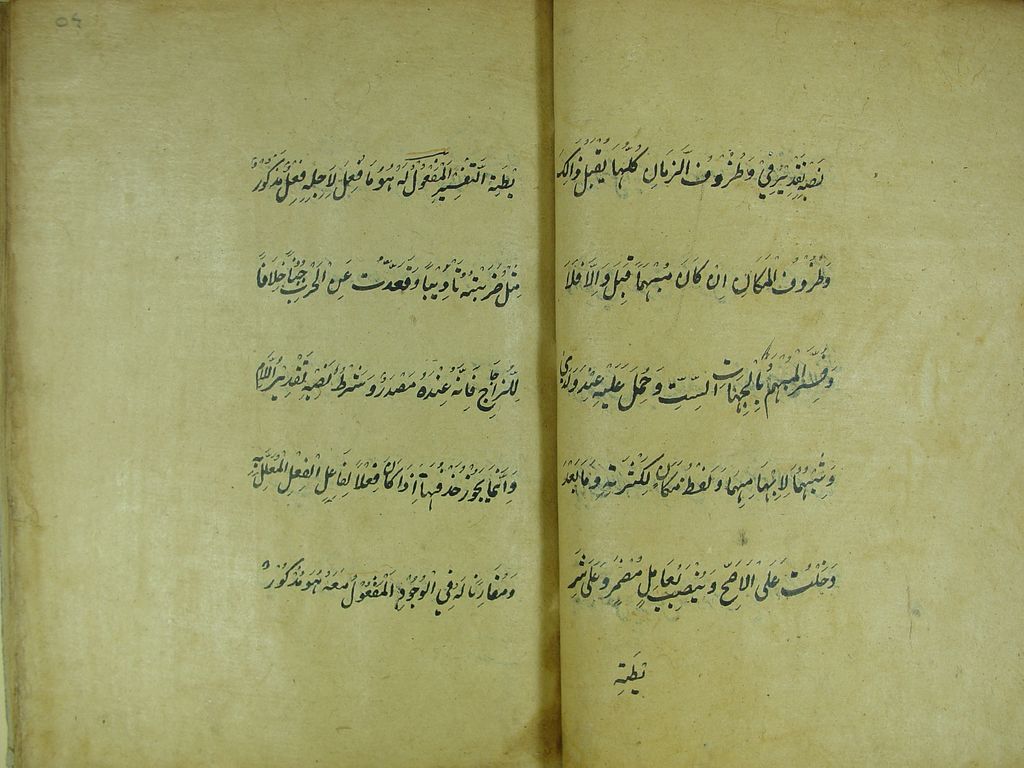 نَصْبِهِ تَقْدِيرُ فِي وَظُرُوفُ الزَّمَانِ كُلُّهَا يَقْبَلُ ذٰلِكَ
وَظُرُوفُ الْمَكَانِ اِنْ كَانَ مُبْهَمًا قَبِلَ وَاِلَّا فَلَا
وَفُسِّرَ الْمُبْهَمُ بِالْجِهَاتِ السِّتِّ وَحُمِلَ عَلَيْهِ عِنْدَ وَلَدٰى
وَشِبْهُهُمَا لِاِبْهَامِهِمَا وَلَفْظُ مَكَانٍ لِكَثْرَتِهِ وَمَا بَعْدَ
دَخَلْتُ عَلَى الْاَصَحِّ وَيُنْصَبُ بِعَامِلٍ مُضْمَرٍ وَعَلٰى شَرِ
يطَةِ
يطَةِ التَّفْسِيرِ الْمَفْعُولُ لَهُ هُوَ مَا فُعِلَ لِاَجْلِهِ فِعْلٌ مَذْكُورٌ
مِثْلُ ضَرَبْتُهُ تَأْدِيبًا وَقَعَدْتُ عَنِ الْحَرْبِ جُبْنًا خِلَافًا
لِلزَّجَّاجِ فَاِنَّهُ عِنْدَهُ مَصْدَرٌ وَشَرْطُ نَصْبِهِ تَقْدِيرُ اللَّامِ
وَاِنَّمَا يَجُوزُ حَذْفُهَا اِذَا كَانَ فِعْلًا لِفَاعِلِ الْفِعْلِ الْمُعَلَّلِ بِهِ
وَمُقَارِنًا لَهُ فِي الْوُجُودِ الْمَفْعُولُ مَعَهُ هُوَ مَذْكُورٌ